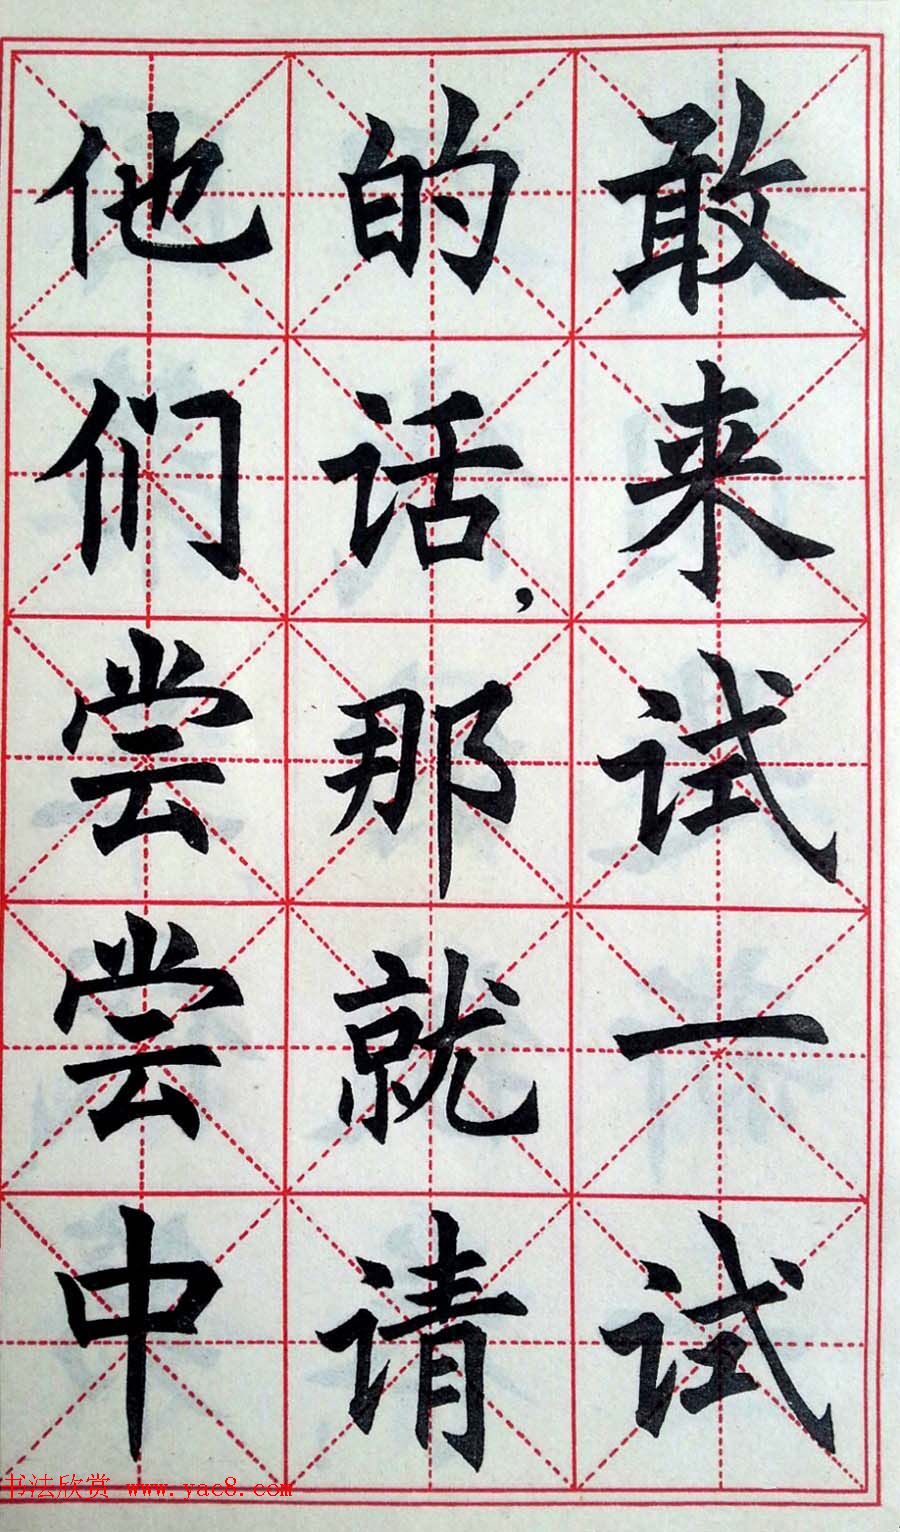 敢来试一试
的话，那就请
他们尝尝中
书法欣赏 www.yac8.com